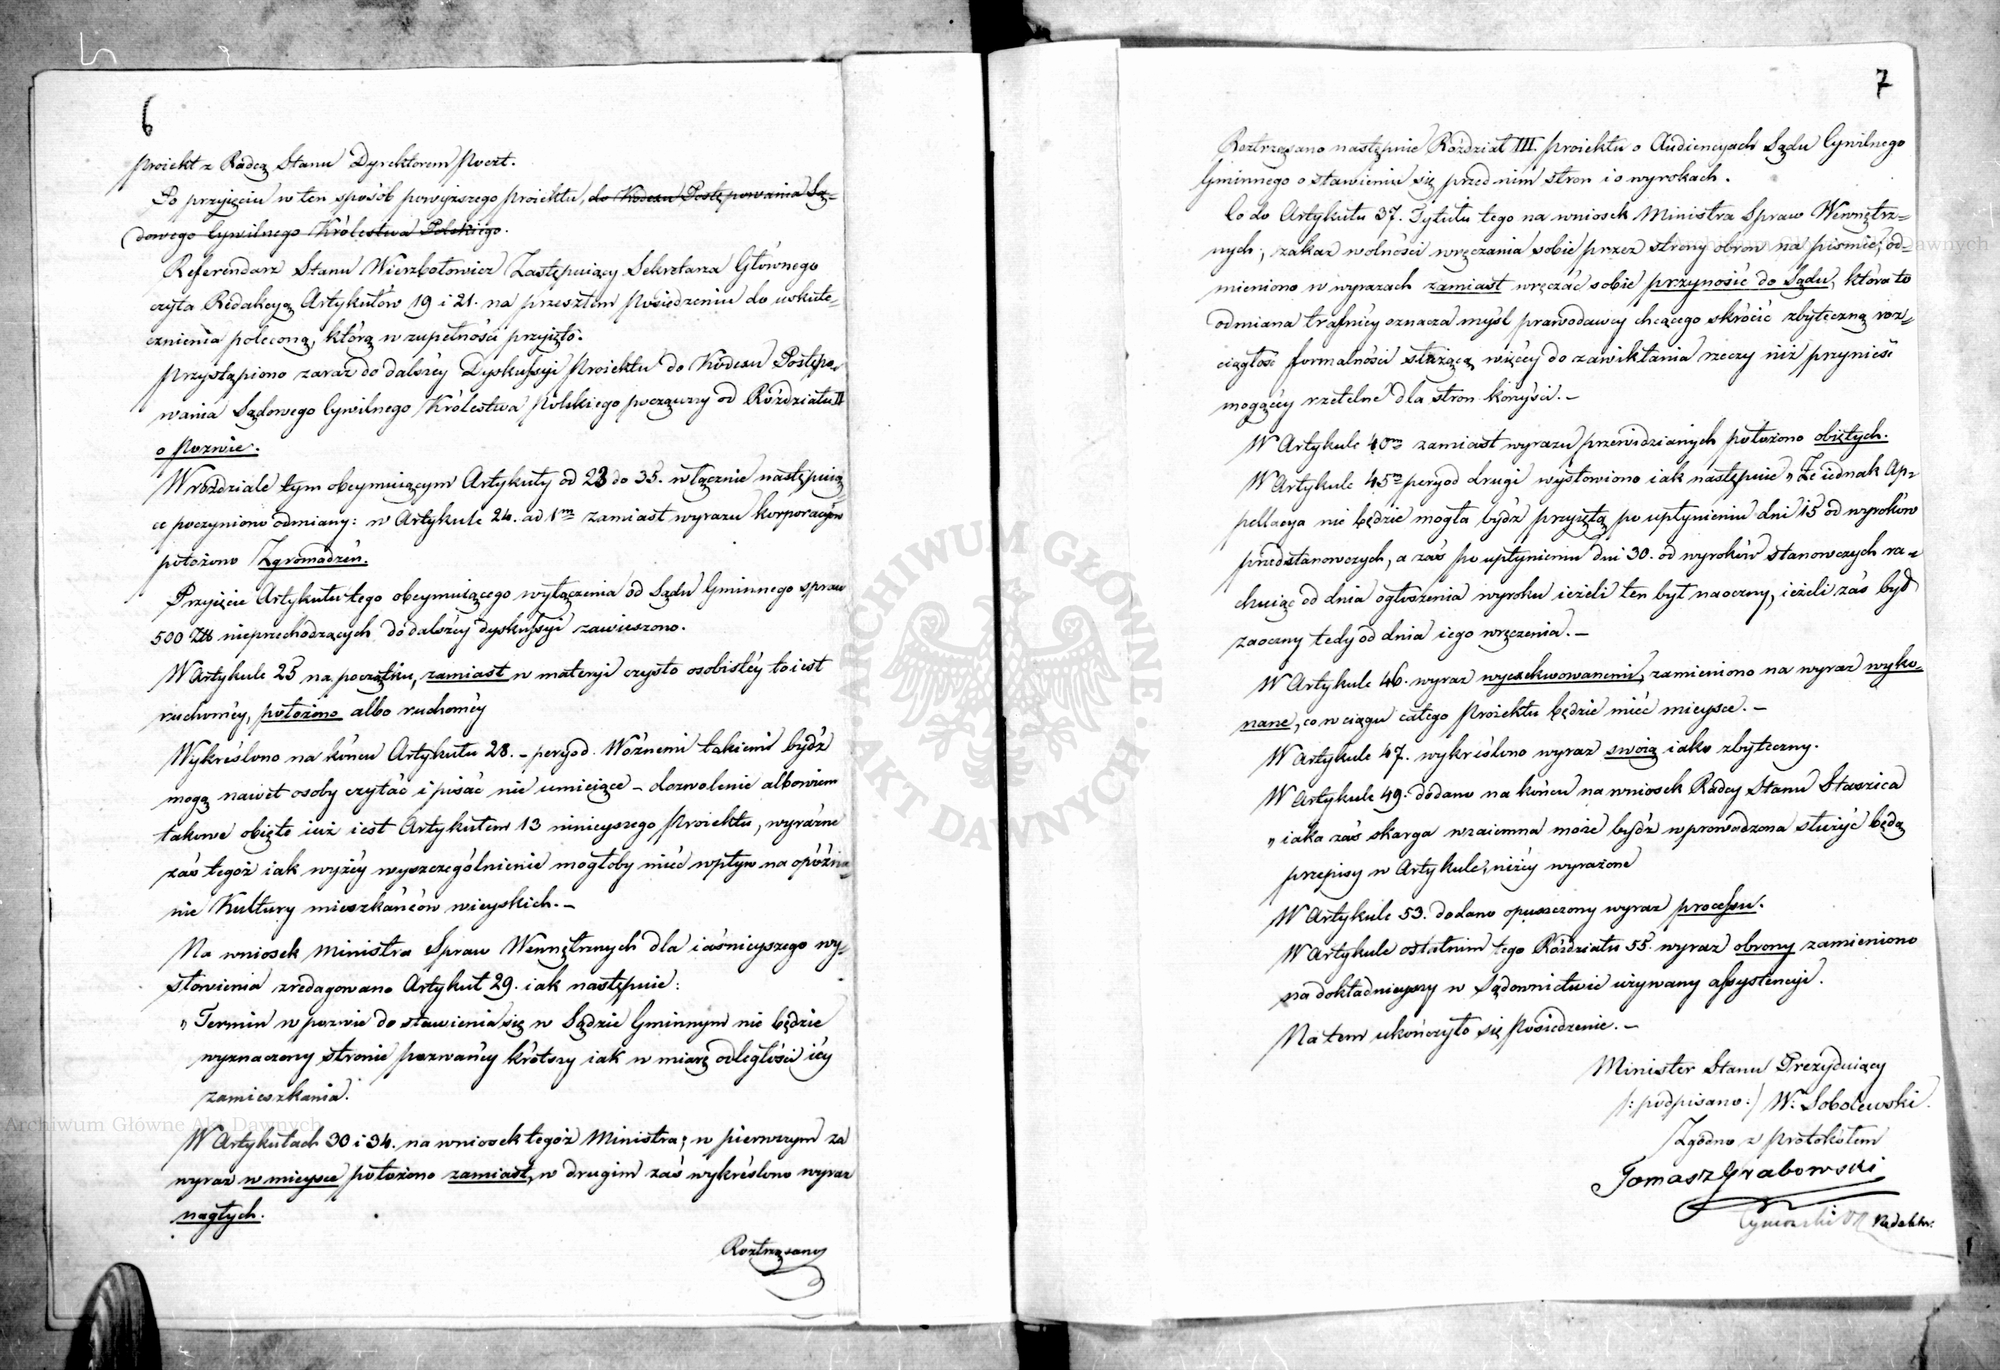 6
Proiekt z Radcą Stanu Dyrektorem Poczt.
Po przyięciu w ten sposób powyższego proiektu, do Kodexu Postępowania Są-
dowego Cywilnego Królestwa Polskiego.
Referendarz Stanu Wierzbołowicz Zastępuiący Sekretarza Głównego
czyta Redakcyą Artykułów 19 i 21. na przeszłem Posiedzeniu do uskute-
cznienia poleconą, którą w zupełności przyięto.
Przystąpiono zaraz do dalszéy Dyskussyi Proiektu do Kodexu Postępo-
wania Sądowego Cywilnego Królestwa Polskiego począwszy od Rozdziału II
o Pozwie.
W rozdziale tym obeymuiącym Artykuły od 23 do 35. włącznie następuią-
ce poczyniono odmiany: w Artykule 24. ad 1m zamiast wyrazu korporacyów
położono Zgromadzeń.
Przyięcie Artykułu tego obeymuiącego wyłączenia od Sądu Gminnego spraw
500 Złł nieprzechodzących do dalszéy dyskussyi zawieszono.
W Artykule 25 na początku, zamiast w materyi czysto osobistéy to iest
ruchoméy, położono albo ruchoméy
Wykreślono na końcu Artykułu 28. – peryod. Woźnemi takiemi bydź
mogą nawet osoby czytać i pisać nie umieiące – dozwolenie albowiem
takowe obięte iuż iest Artykułem 13 ninieyszego Proiektu, wyraźne
zaś tegoż iak wyżéy wyszczególnienie mogłoby mieć wpływ na opóźnie-
nie Kultury mieszkańców wieyskich. –
Na wniosek Ministra Spraw Wewnętrznych dla iaśnieyszego wy-
słowienia zredagowano Artykuł 29. iak następuie:
„Termin w pozwie do stawienia się w Sądzie Gminnym nie będzie
wyznaczony stronie pozwanéy krótszy iak w miarę odległości iéy
zamieszkania.
W Artykułach 30 i 34. na wniosek tegoż Ministra; w pierwszym za
wyraz w mieysce położono zamiast, w drugim zaś wykreślono wyraz
nagłych.
Roztrząsano
7
Roztrząsano następnie Rozdział III. proiektu o Audiencyach Sądu Cywilnego
Gminnego o stawieniu się przed nim stron i o wyrokach.
Co do Artykułu 37. Tytułu tego na wniosek Ministra Spraw Wewnętrz-
nych, zakaz wolności wręczania sobie przez strony obron na piśmie, od-
mieniono w wyrazach zamiast wręczać sobie przynosić do Sądu, która to
odmiana trafniéy oznacza myśl prawodawcy chcącego skrócić zbyteczną roz-
ciągłość formalności służącą więcéy do zawikłania rzeczy niż przynieść
mogącéy rzetelne dla stron korzyści. –
W Artykule 40m zamiast wyrazu przewidzianych położono obiętych.
W Artykule 45m peryod drugi wysłowiono iak następuie „Że iednak Ap-
pellacya nie będzie mogła bydź przyiętą po upłynieniu dni 15 od wyroków
przedstanowczych, a zaś po upłynieniu dni 30. od wyroków stanowczych ra-
chuiąc od dnia ogłoszenia wyroku ieżeli ten był naoczny, ieżeli zaś był
zaoczny tedy od dnia iego wręczenia. –
W Artykule 46. wyraz wyexekwowanemi, zamieniono na wyraz wyko-
nane, co w ciągu całego Proiektu będzie mieć mieysce. –
W Artykule 47. wykreślono wyraz swoią iako zbyteczny.
W Artykule 49. dodano na końcu na wniosek Radcy Stanu Staszica
„iaka zaś skarga wzaiemna może bydź wprowadzona służyć będą
przepisy w Artykule, niżéy wyrażone
W Artykule 53. dodano opuszczony wyraz processu.
W Artykule ostatnim tego Rozdziału 55. wyraz obrony zamieniono
na dokładnieyszy w Sądownictwie używany assystencyi.
Na tem ukończyło się Posiedzenie. –
Minister Stanu Prezyduiący
/: podpisano :/ W: Sobolewski.
Zgodno z Protokółem
Tomasz Grabowski
Redaktor.
ARCHIWUM GŁÓWNE AKT DAWNYCH
Archiwum Główne Akt Dawnych